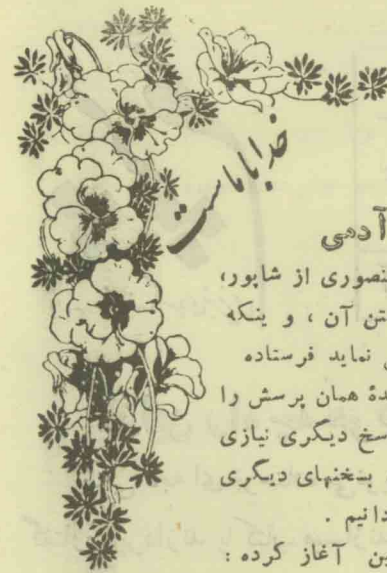 خدا با ماست
آدمی
نصوری از شاپور،
تن آن ، و ینکه
نماید فرستاده
دهٔ همان پرسش را
سخ دیگری نیازی
بسخنهای دیگری
دانیم .
ین آغاز کرده :